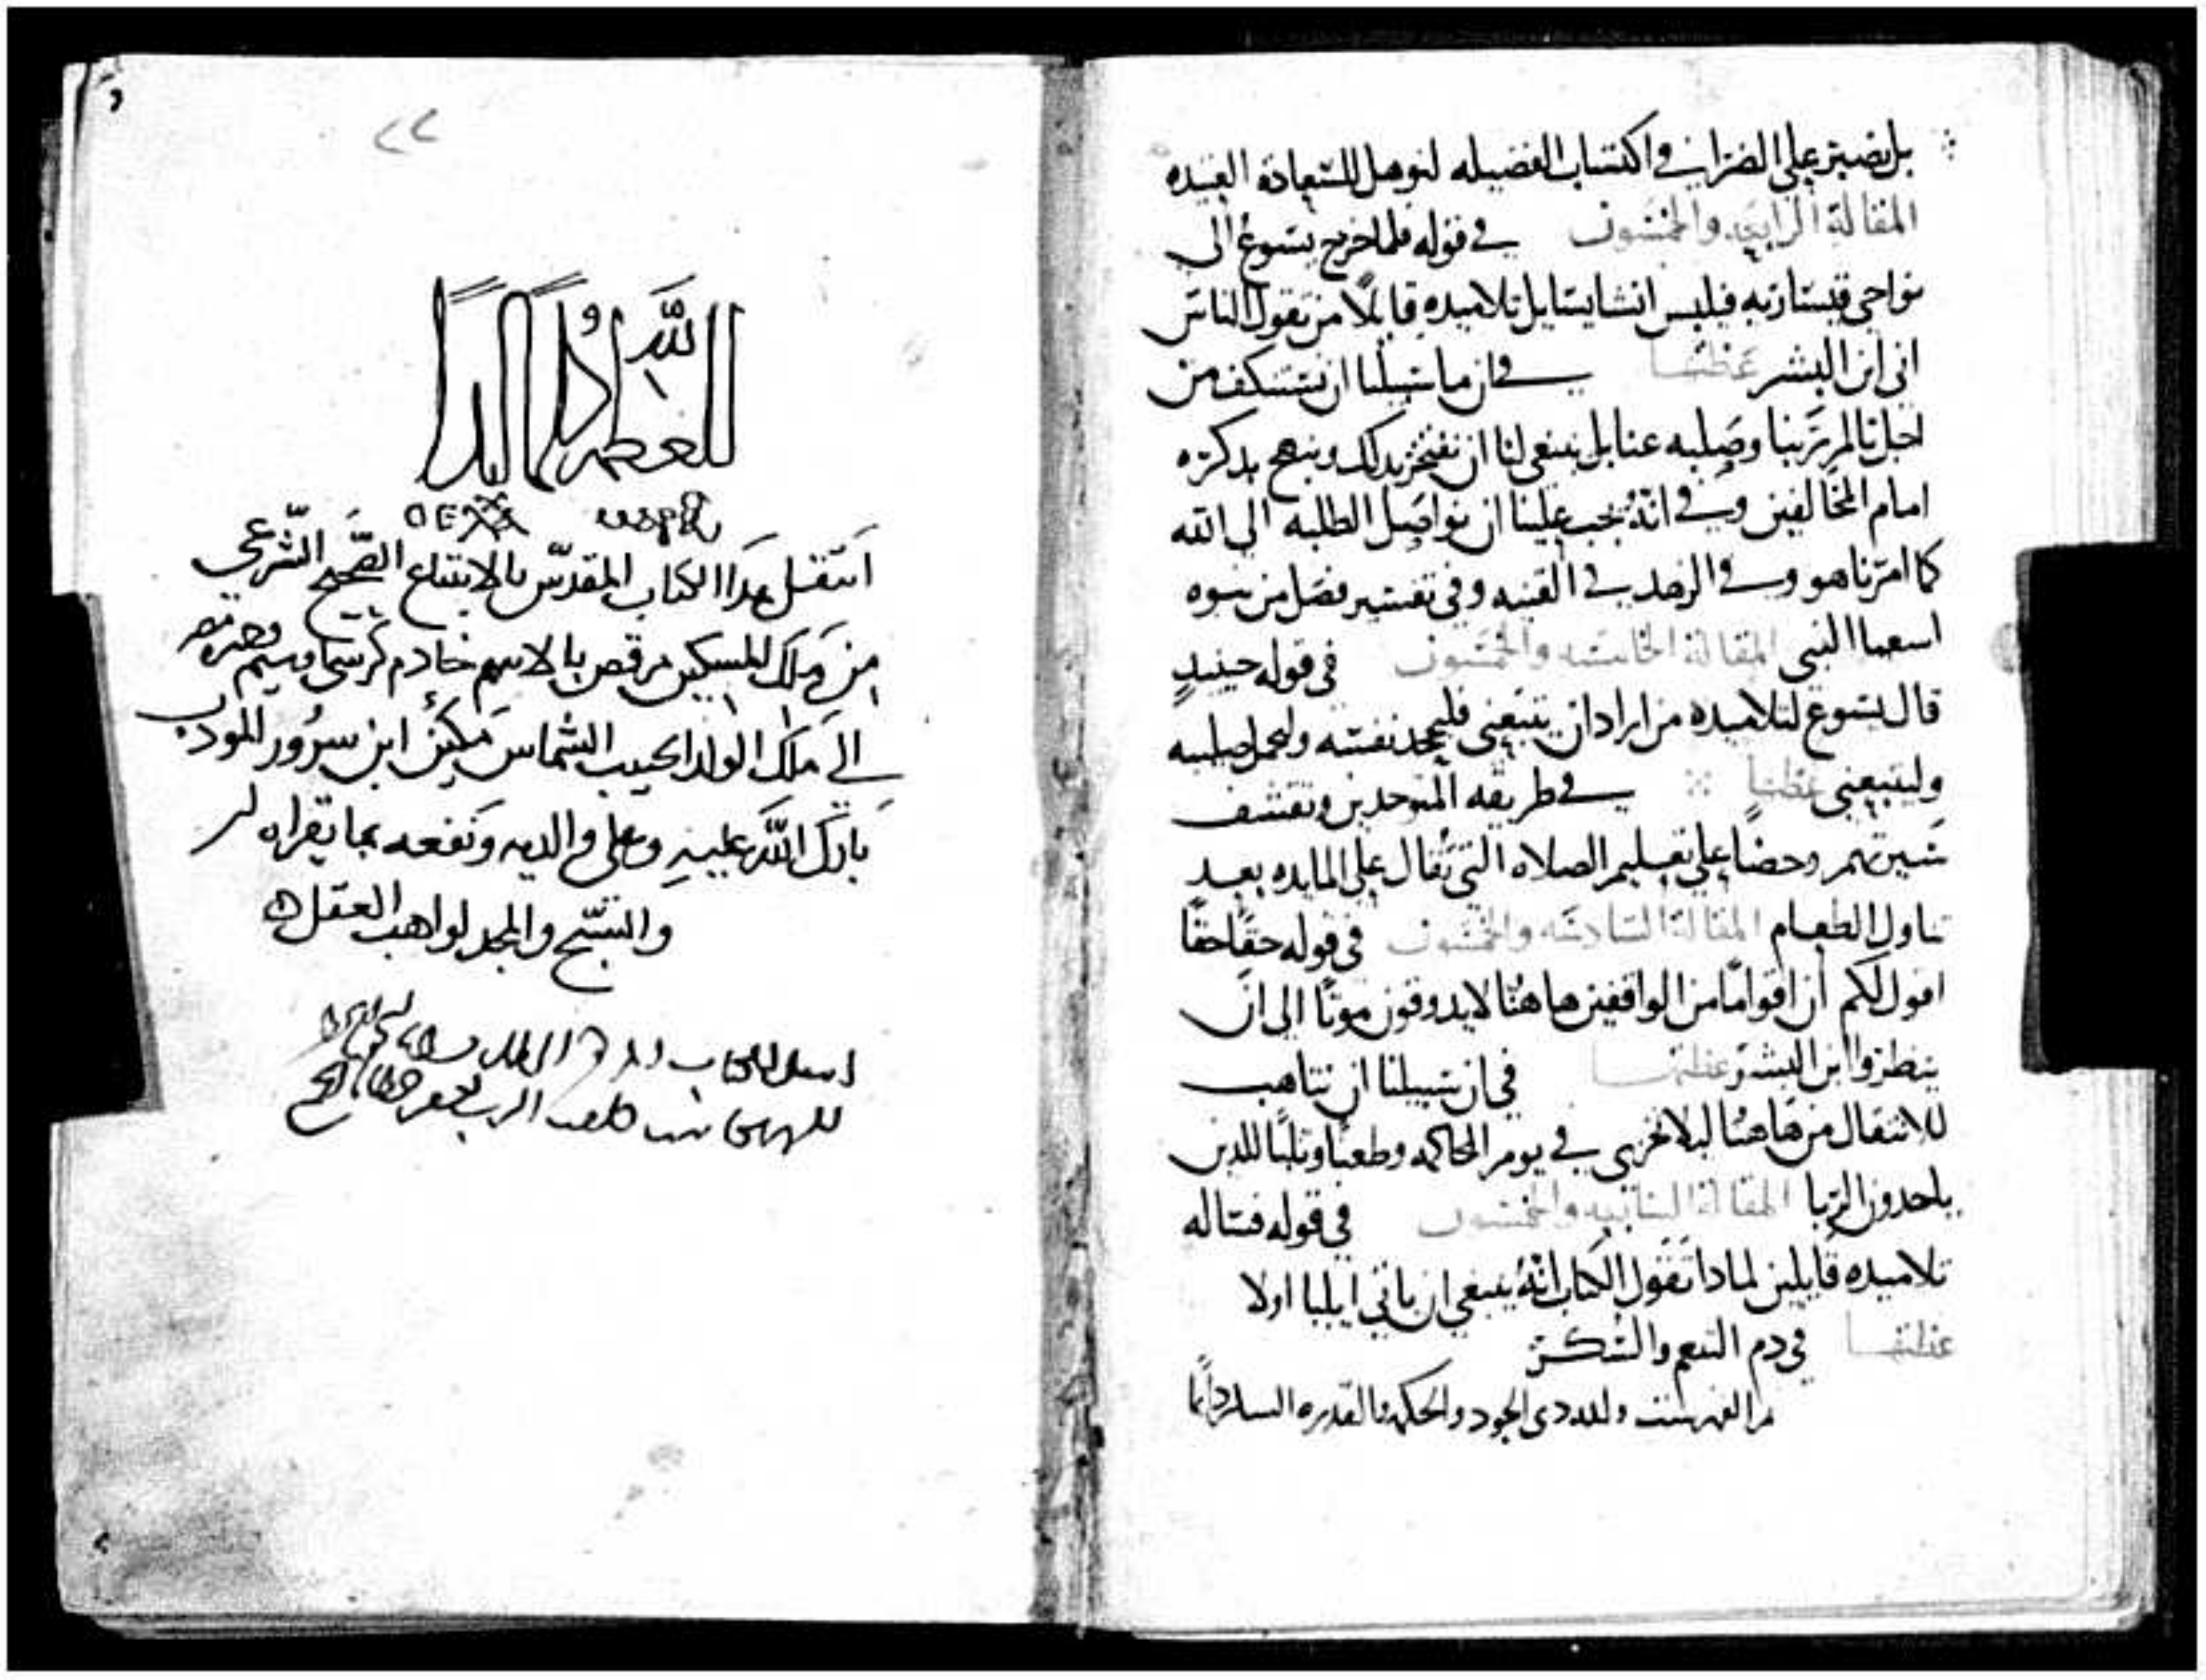 بل نصبر على الضراب في اكتساب الفضيله لنوهل للسعادة العتيده
المقالة الرابعه والخمسون في قوله فلما خرج يسوع الى
نواحي قيسارية فيلبس انشا يسايل تلاميده قايلًا من تقول الناس
اني ابن البشر عظتها في ان ما سبيلنا ان نستنكف من
اجل تالم ربنا وصلبه عنا بل ينبغي لنا ان نفتخر بدلك ونبهج بدكره
امام المخالفين وفي انهُ يجب علينا ان نواصل الطلبه الى الله
كما امرنا هو وفي الزهد في القنيه وفي تفسير فصل من نبوه
اسعيا النبي المقالة الخامسه والخمسون في قوله حينيدٍ
قال يسوع لتلاميده من اراد ان يتبعني فليجحد نفسه وليحمل صليبه
وليتبعني عظتها في طريقه المتوحدين وتقشف
سيرتهم وحضًا على تعليم الصلاه التي تقال على المايده بعد
تناول الطعام المقالة السادسه والخمسون في قوله حقًا حقًا
اقول لكم ان اقوامًا من الواقفين هاهنا لا يدوقون موتًا الى ان
ينظروا ابن البشر عظتها في ان سبيلنا ان نتاهب
للانتقال من هاهنا ليلا نخزى في يوم المحاكمه وطعنًا وثلبًا للدين
ياخدون الربا المقالة السابعه والخمسون في قوله فساله
تلاميده قايلين لمادا تقول الكتاب انهُ ينبغي ان ياتي ايليا اولا
عظتها في دم التنعم والسكر
الفهرست ولله دى الجود والحكمه والقدره دايمًا
٢٢
العظمه لله دايمًا ابدًا
انتقل هدا الكتاب المقدّس بالابتياع الصّحيح الشّرعي
من ملك المسكين مرقص بالاسم خادم كرسي وسيم
الي ملك الولد الحبيب الشماس مكين ابن سرور المودب
بارك الله عليه وعلى والديه ونفعه بما يقراه
والتسبّح والمجد لواهب العقل
الكتاب
الرب